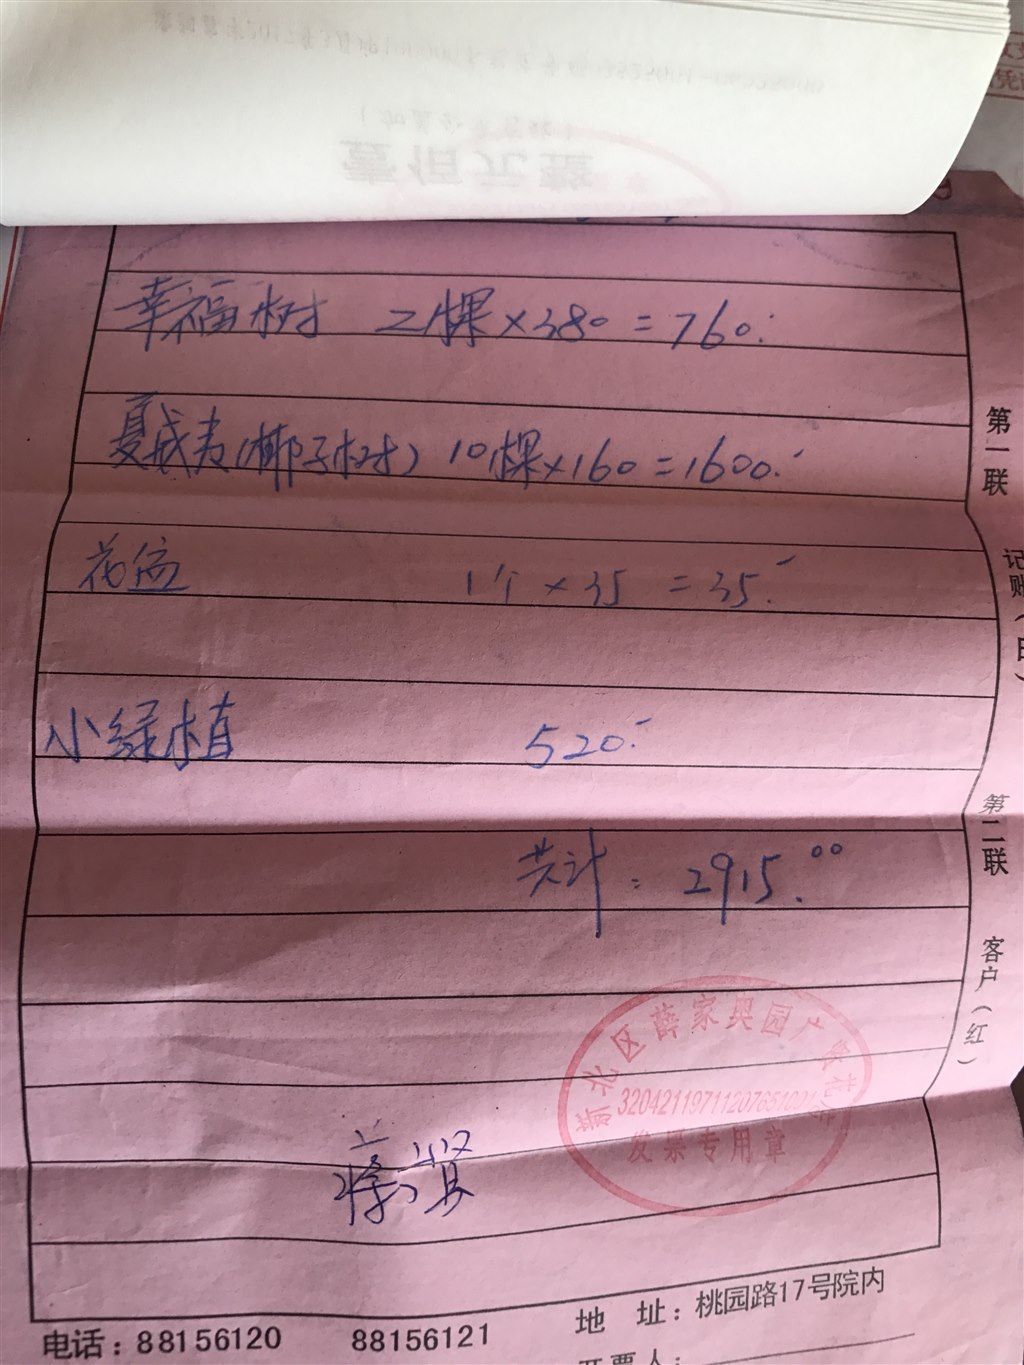 壹佰元整
幸福树 2棵×380=760.
夏威夷(椰子树) 10棵×160=1600.-
花盆 1个×35=35.-
小绿植 520.-
共计: 2915.00
新北区薛家奥园广
320421197112076510
发票专用章
第一联 记账(白)
第二联 客户(红)
电话:88156120 88156121
地 址:桃园路17号院内
开票人: